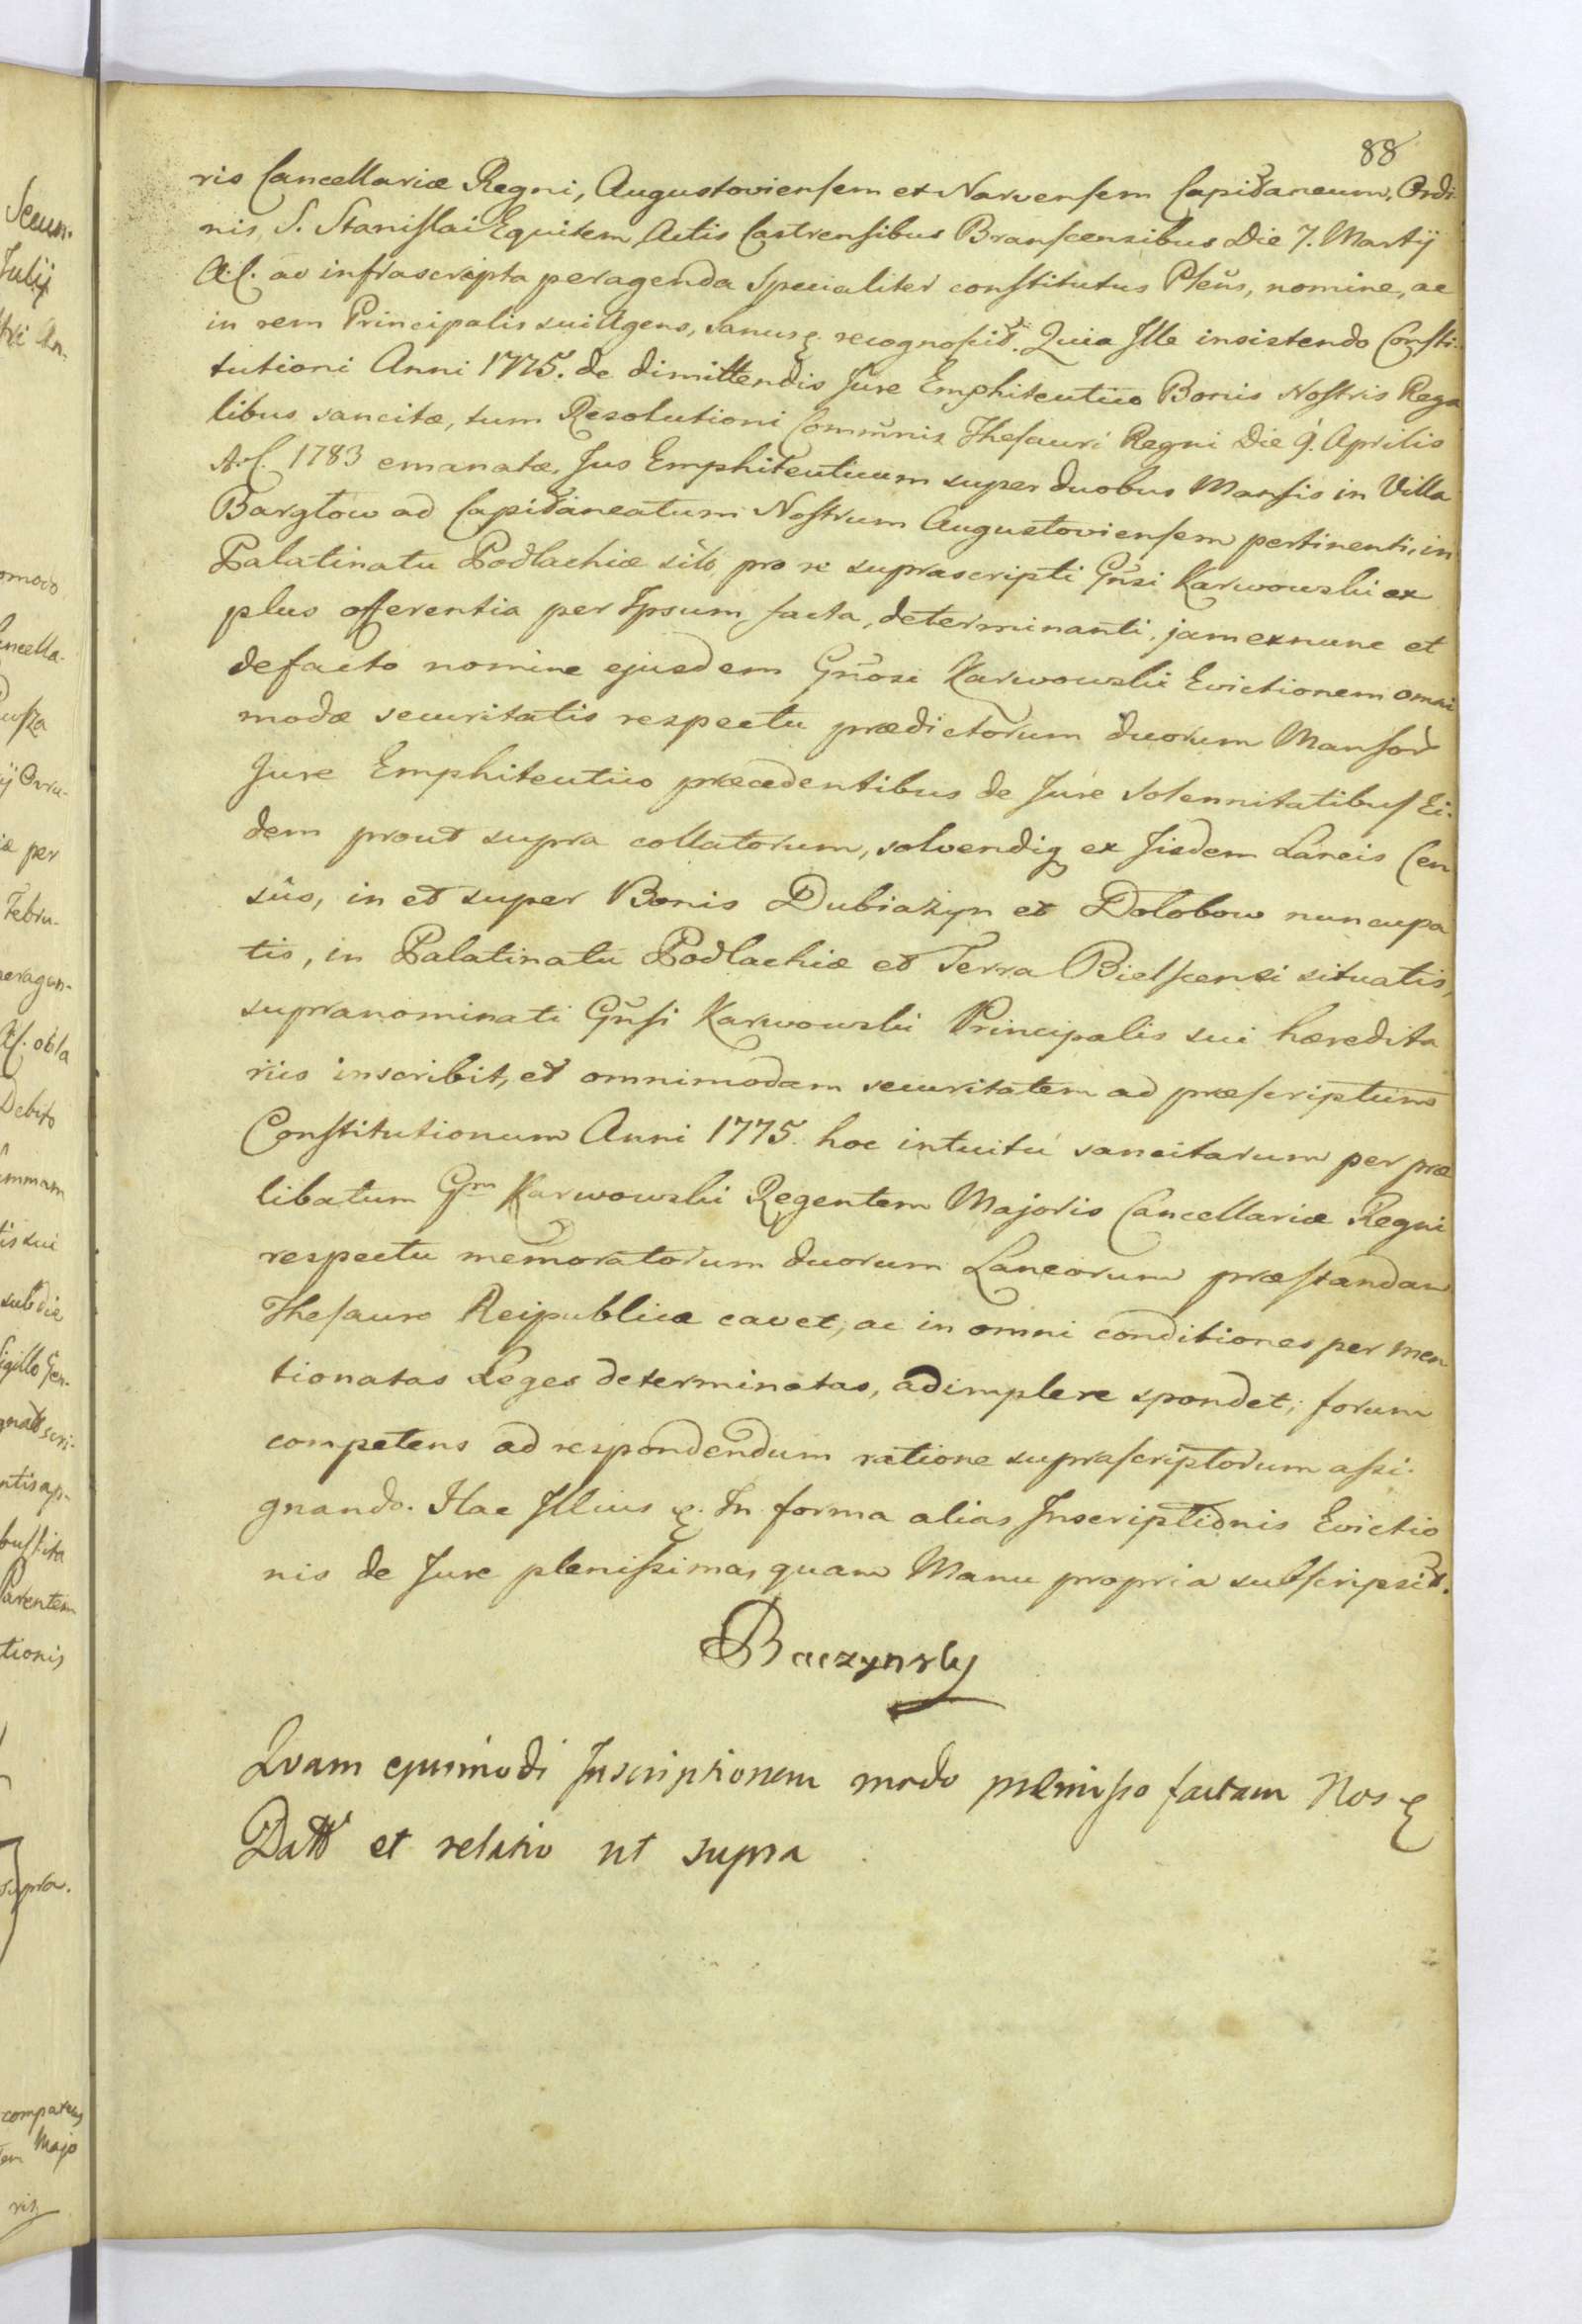 88
ris Cancellariæ Regni, Augustoviensem et Narvensem Capitaneum, Ordi-
nis S. Stanislai Equitem, Actis Castrensibus Branscensibus Die 7. Martij
A.C. ad infrascripta peragenda Specialiter constitutus Pleñs, nomine, ac
in rem Principalis sui Agens, sanus recognoscit. Quia Ille insistendo Consti-
tutioni Anni 1775. de dimittendis Jure Emphiteutico Bonis Nostris Rega
libus sancitæ, tum Resolutioni Com̃unis Thesauri Regni Die 9. Aprilis
A.C. 1783 emanatæ, Jus Emphiteuticum super duobus Mansis in Villa
Bargłow ad Capitaneatum Nostrum Augustoviensem pertinenti, in
Palatinatu Podlachiæ sito, pro re suprascripti Gñsi Karwowski ex
plus offerentia per Ipsum facta, determinanti, jam ex nunc et
de facto nomine ejusdem Gñosi Karwowski Evictionem omni
modæ securitatis respectu prædictorum duorum Mansor̃
Jure Emphiteutico præcedentibus de Jure Solennitatibus Ei-
dem prout supra collatorum, solvendiq ex Iisdem Laneis Cen
sûs, in et super Bonis Dubiażyn et Dołobow nuncupa
tis, in Palatinatu Podlachiæ et Terra Bielscensi situatis,
supranominati Gñsi Karwowski Principalis sui hæredita
riis inscribit, et omnimodam securitatem ad præscriptum
Constitutionum Anni 1775. hoc intuitu sancitarum per præ
libatum Gm Karwowski Regentem Majoris Cancellariæ Regni
respectu memoratorum duorum Laneorum præstandam
Thesauro Reipublicæ cavet; ac in omni conditiones per men
tionatas Leges determinatas, adimplere spondet; forum
competens ad respondendum ratione suprascriptorum assi-
gnando. Hac Illius In forma alias Inscriptionis Evictio
nis de Jure plenissima, quam Manu propria subscripsit.
Baczynsky
Quam ejusmodi Inscriptionem modo præmisso factam Nos
Datt et relatio ut supra